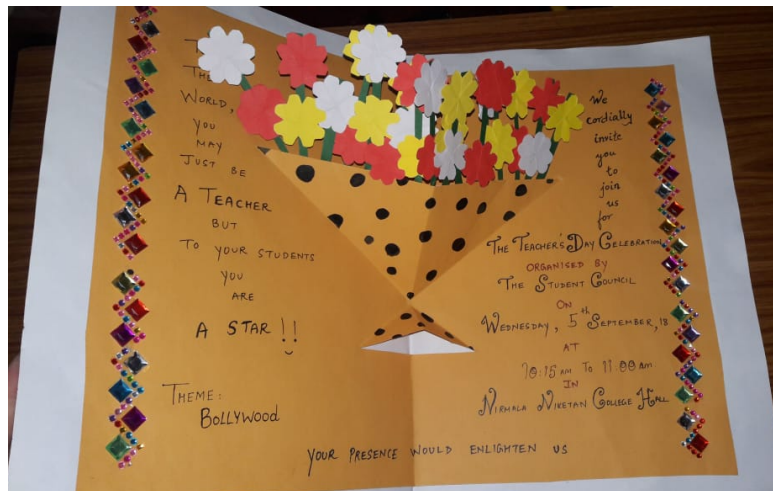 T
THE
WORLD,
YOU
MAY
JUST BE
A TEACHER
BUT
TO YOUR STUDENTS
YOU
ARE
A STAR !!
THEME:
BOLLYWOOD
We
cordially
invite
you
to
join
us
for
THE TEACHER'S DAY CELEBRATION
ORGANISED BY
THE STUDENT COUNCIL
ON
WEDNESDAY, 5th SEPTEMBER, 18
AT
10:15 AM TO 11:00 AM
IN
NIRMALA NIKETAN COLLEGE HALL
YOUR PRESENCE WOULD ENLIGHTEN US